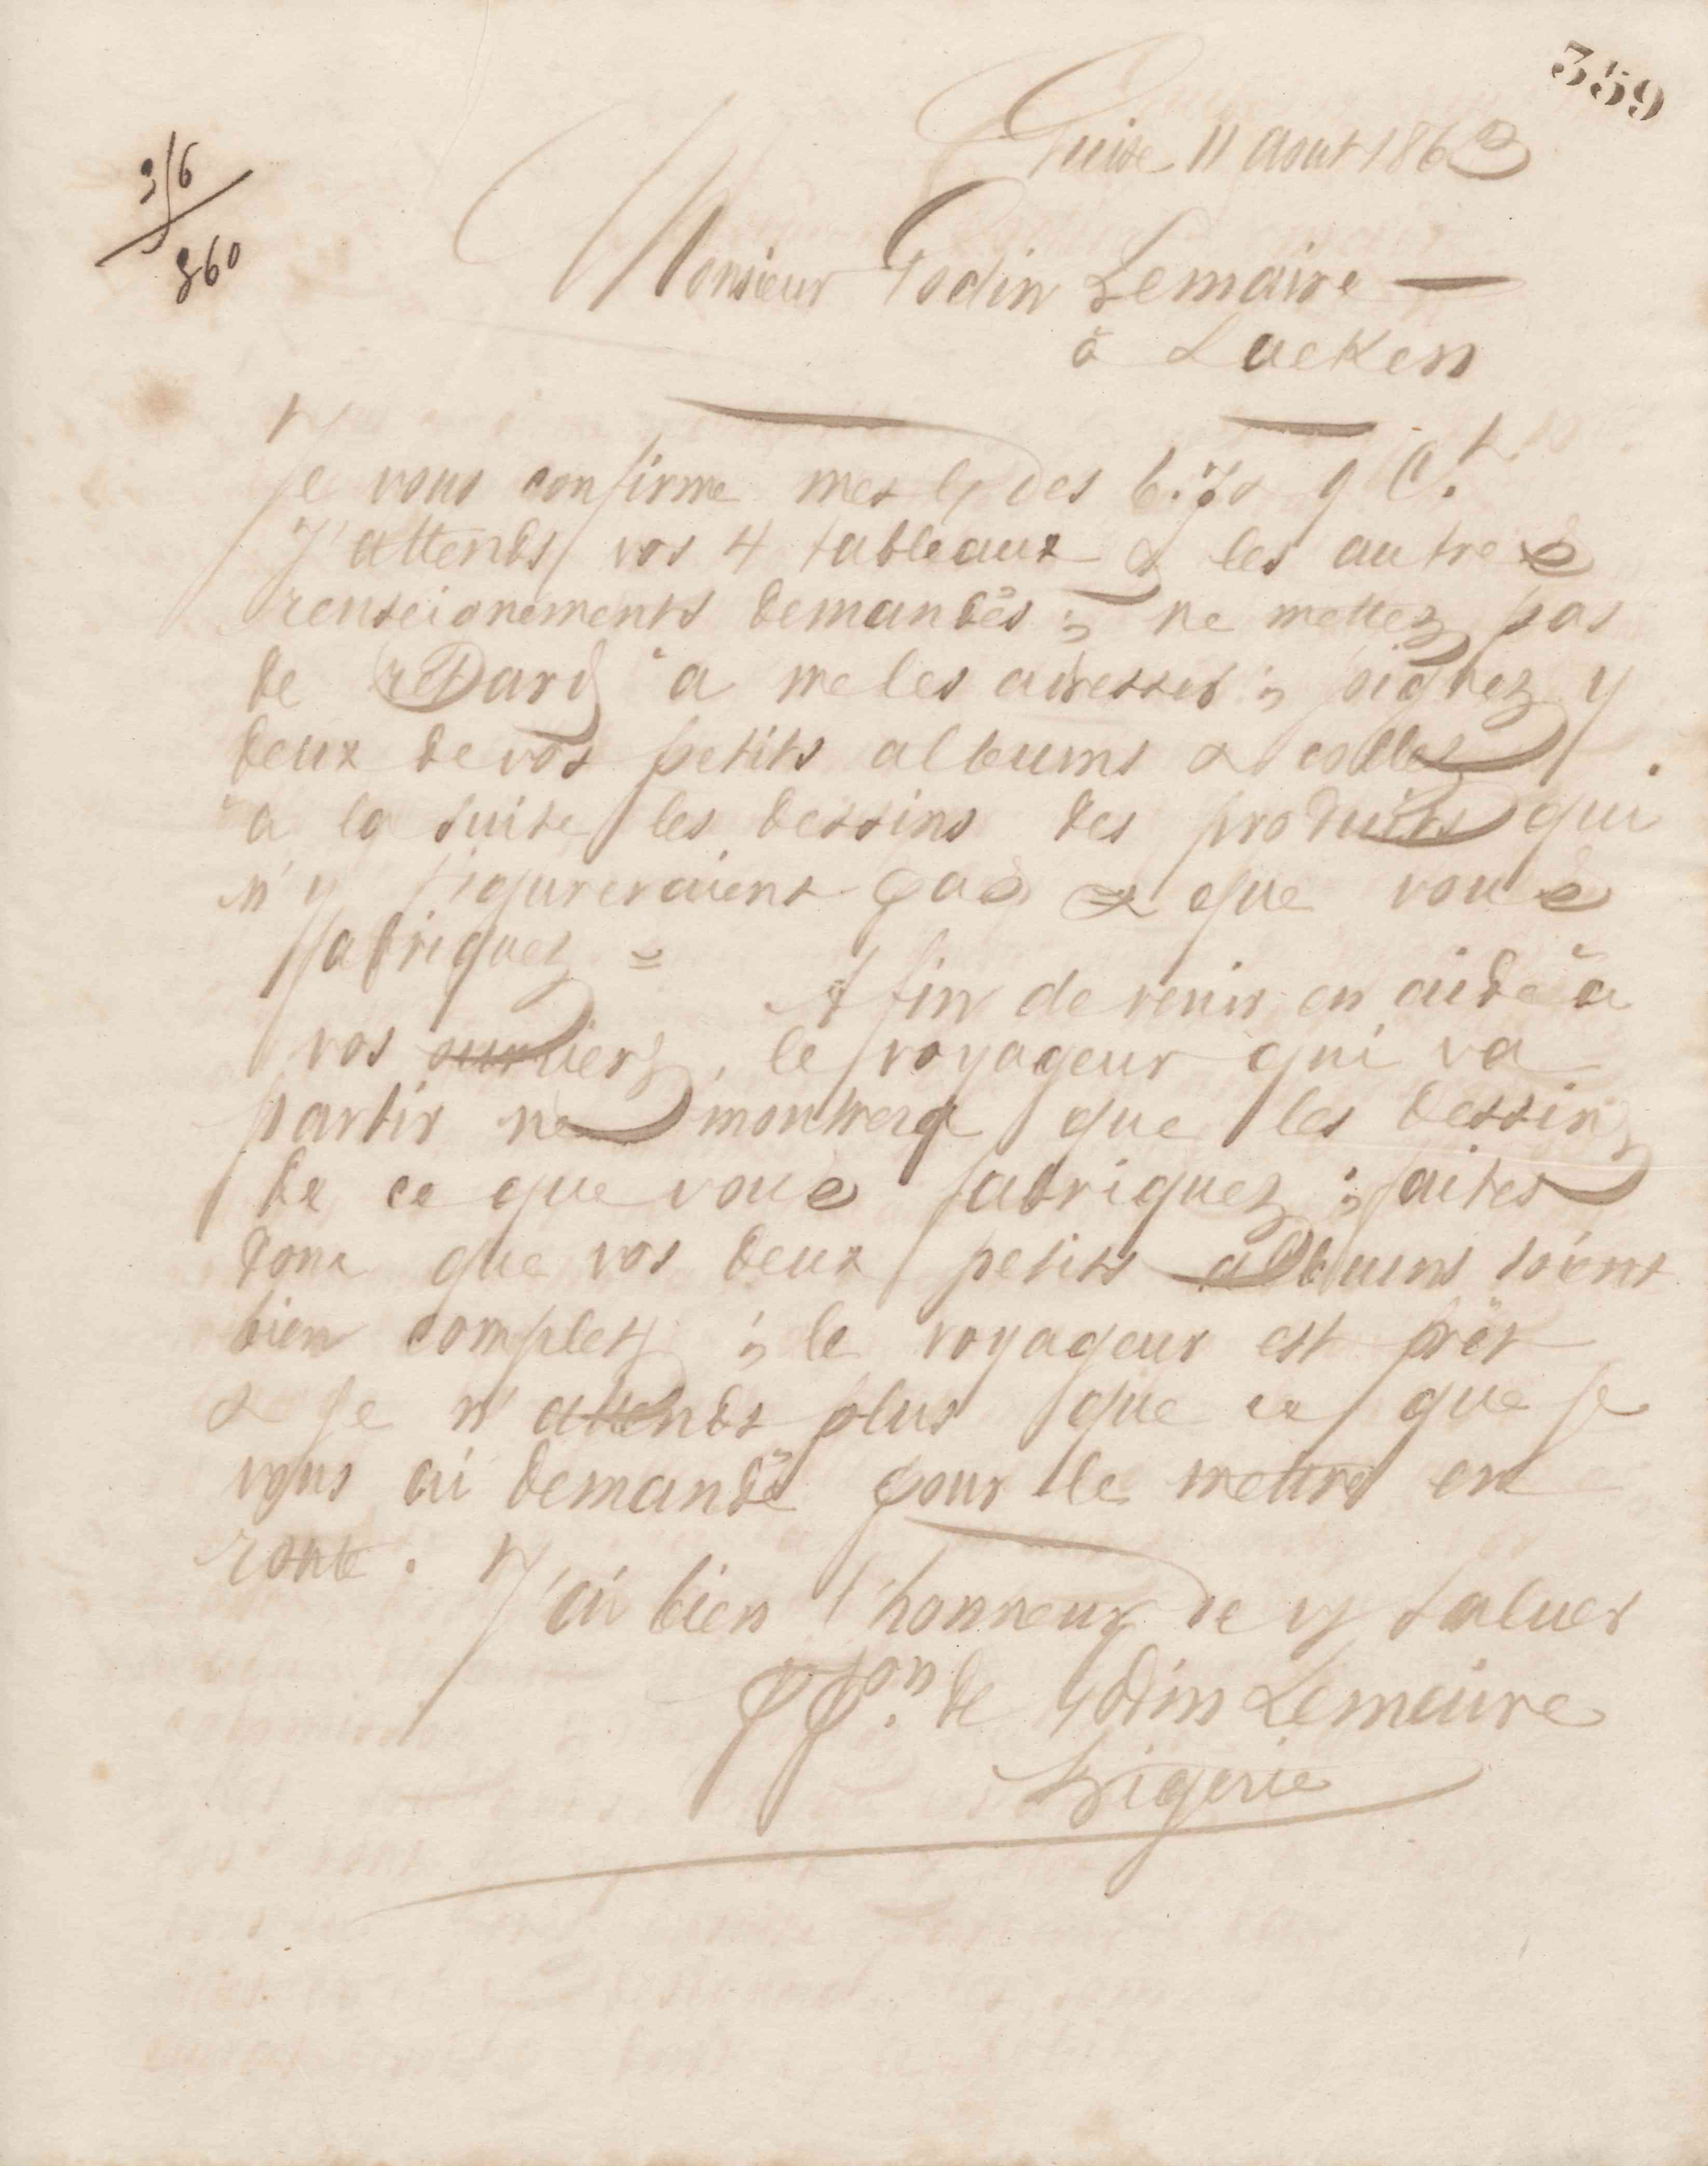 359
Guise 11 Aout 1863
316
360
Monsieur Godin Lemaire —
à Laeken
Je vous confirme mes des 6. 7 & 9 Ct.
J'attends vos 4 tableaux & les autres
renseignements demandés ; ne mettez pas
de retard à me les adresser ; joignez y
deux de vos petits albums & collez
à la suite les dessins des produits qui
n'y figureraient pas & que vous
fabriquez =
Afin de venir en aide à
vos, le voyageur qui va
partir ne montrera que les dessins
de ce que vous fabriquez ; faites
donc que vos deux petits albums soient
bien complets ; le voyageur est prêt
& je n'attends plus que ce que je
vous ai demandé pour le mettre en
route.
J'ai bien l'honneur de vs saluer
PPon. de Godin Lemaire